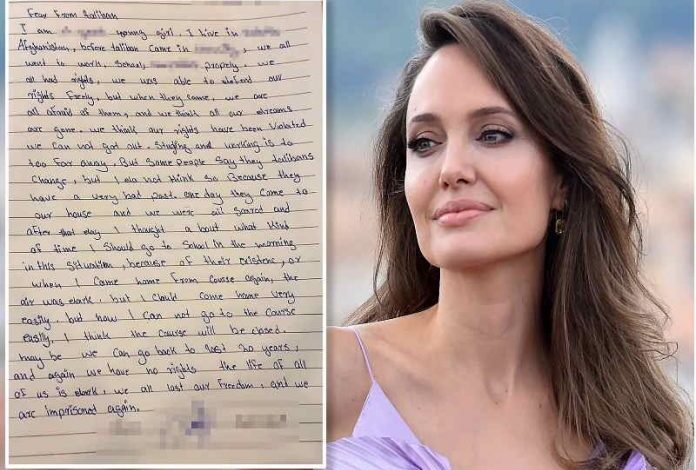 Fear From taliban
I am young girl. I live in
Afghanistan, before taliban came in , we all
went to work, school, propely. we
all had rights, we was able to defend our
rights Freely, but when they came, we are
all afraid of them, and we think all our dreams
are gone. we think our rights have been violated
we can not got out. Studing and working is to
too far away. But some people say they talibans
Change, but I do not think so Because they
have a very bat past. one day they come to
our house and we were all scared and
after that day I thought a bout what kind
of time I should go to school in the morning
in this situation, because of their existenc, or
when I came home from course again, the
air was dark, but I could come home very
easily. but now I can not go to the course
easily. I think the course will be closed.
may be we can go back to last 20 years,
and again we have no rights the life of all
of us is dark, we all last our freedom, and we
are imprisoned again.